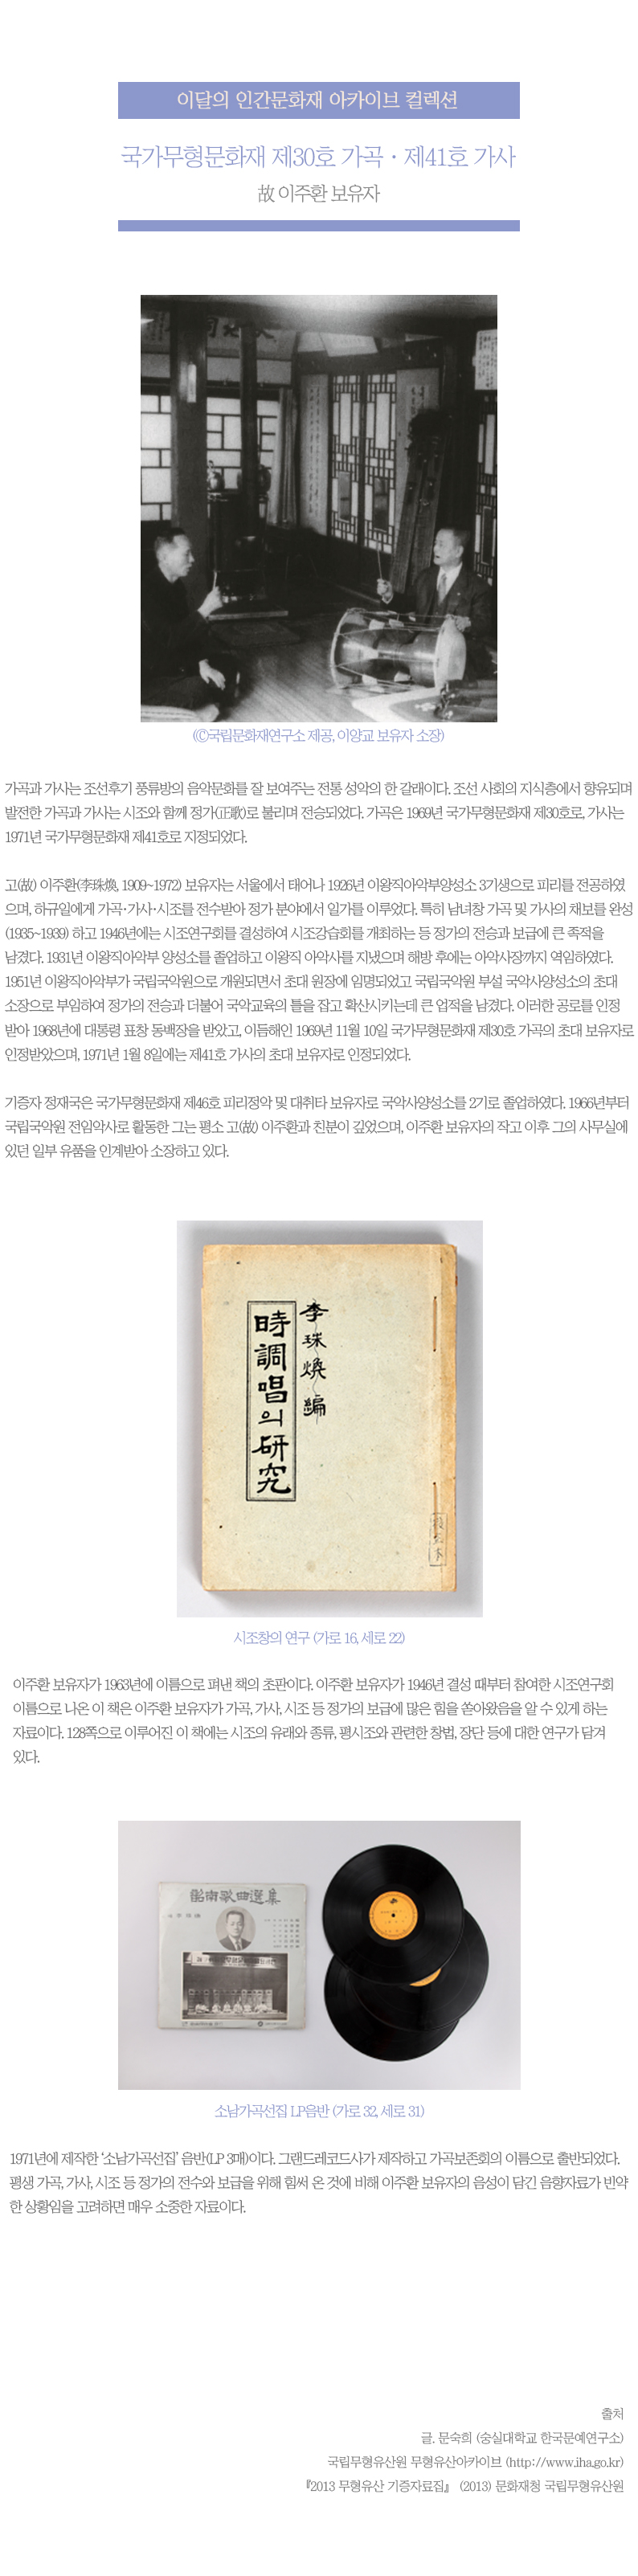 이달의 인간문화재 아카이브 컬렉션
국가무형문화재 제30호 가곡 · 제41호 가사
故 이주환 보유자
(ⓒ국립문화재연구소 제공, 이양교 보유자 소장)
가곡과 가사는 조선후기 풍류방의 음악문화를 잘 보여주는 전통 성악의 한 갈래이다. 조선 사회의 지식층에서 향유되며
발전한 가곡과 가사는 시조와 함께 정가(正歌)로 불리며 전승되었다. 가곡은 1969년 국가무형문화재 제30호로, 가사는
1971년 국가무형문화재 제41호로 지정되었다.
고(故) 이주환(李珠煥, 1909~1972) 보유자는 서울에서 태어나 1926년 이왕직아악부양성소 3기생으로 피리를 전공하였
으며, 하규일에게 가곡·가사·시조를 전수받아 정가 분야에서 일가를 이루었다. 특히 남녀창 가곡 및 가사의 채보를 완성
(1935~1939) 하고 1946년에는 시조연구회를 결성하여 시조강습회를 개최하는 등 정가의 전승과 보급에 큰 족적을
남겼다. 1931년 이왕직아악부 양성소를 졸업하고 이왕직 아악사를 지냈으며 해방 후에는 아악사장까지 역임하였다.
1951년 이왕직아악부가 국립국악원으로 개원되면서 초대 원장에 임명되었고 국립국악원 부설 국악사양성소의 초대
소장으로 부임하여 정가의 전승과 더불어 국악교육의 틀을 잡고 확산시키는데 큰 업적을 남겼다. 이러한 공로를 인정
받아 1968년에 대통령 표창 동백장을 받았고, 이듬해인 1969년 11월 10일 국가무형문화재 제30호 가곡의 초대 보유자로
인정받았으며, 1971년 1월 8일에는 제41호 가사의 초대 보유자로 인정되었다.
기증자 정재국은 국가무형문화재 제46호 피리정악 및 대취타 보유자로 국악사양성소를 2기로 졸업하였다. 1966년부터
국립국악원 전임악사로 활동한 그는 평소 고(故) 이주환과 친분이 깊었으며, 이주환 보유자의 작고 이후 그의 사무실에
있던 일부 유품을 인계받아 소장하고 있다.
李珠煥 編
時調唱의 硏究
시조창의 연구 (가로 16, 세로 22)
이주환 보유자가 1963년에 이름으로 펴낸 책의 초판이다. 이주환 보유자가 1946년 결성 때부터 참여한 시조연구회
이름으로 나온 이 책은 이주환 보유자가 가곡, 가사, 시조 등 정가의 보급에 많은 힘을 쏟아왔음을 알 수 있게 하는
자료이다. 128쪽으로 이루어진 이 책에는 시조의 유래와 종류, 평시조와 관련한 창법, 장단 등에 대한 연구가 담겨
있다.
韶南歌曲選集
소남가곡선집 LP음반 (가로 32, 세로 31)
1971년에 제작한 ‘소남가곡선집’ 음반(LP 3매)이다. 그랜드레코드사가 제작하고 가곡보존회의 이름으로 출반되었다.
평생 가곡, 가사, 시조 등 정가의 전수와 보급을 위해 힘써 온 것에 비해 이주환 보유자의 음성이 담긴 음향자료가 빈약
한 상황임을 고려하면 매우 소중한 자료이다.
출처
글. 문숙희 (숭실대학교 한국문예연구소)
국립무형유산원 무형유산아카이브 (http://www.iha.go.kr)
『2013 무형유산 기증자료집』 (2013) 문화재청 국립무형유산원